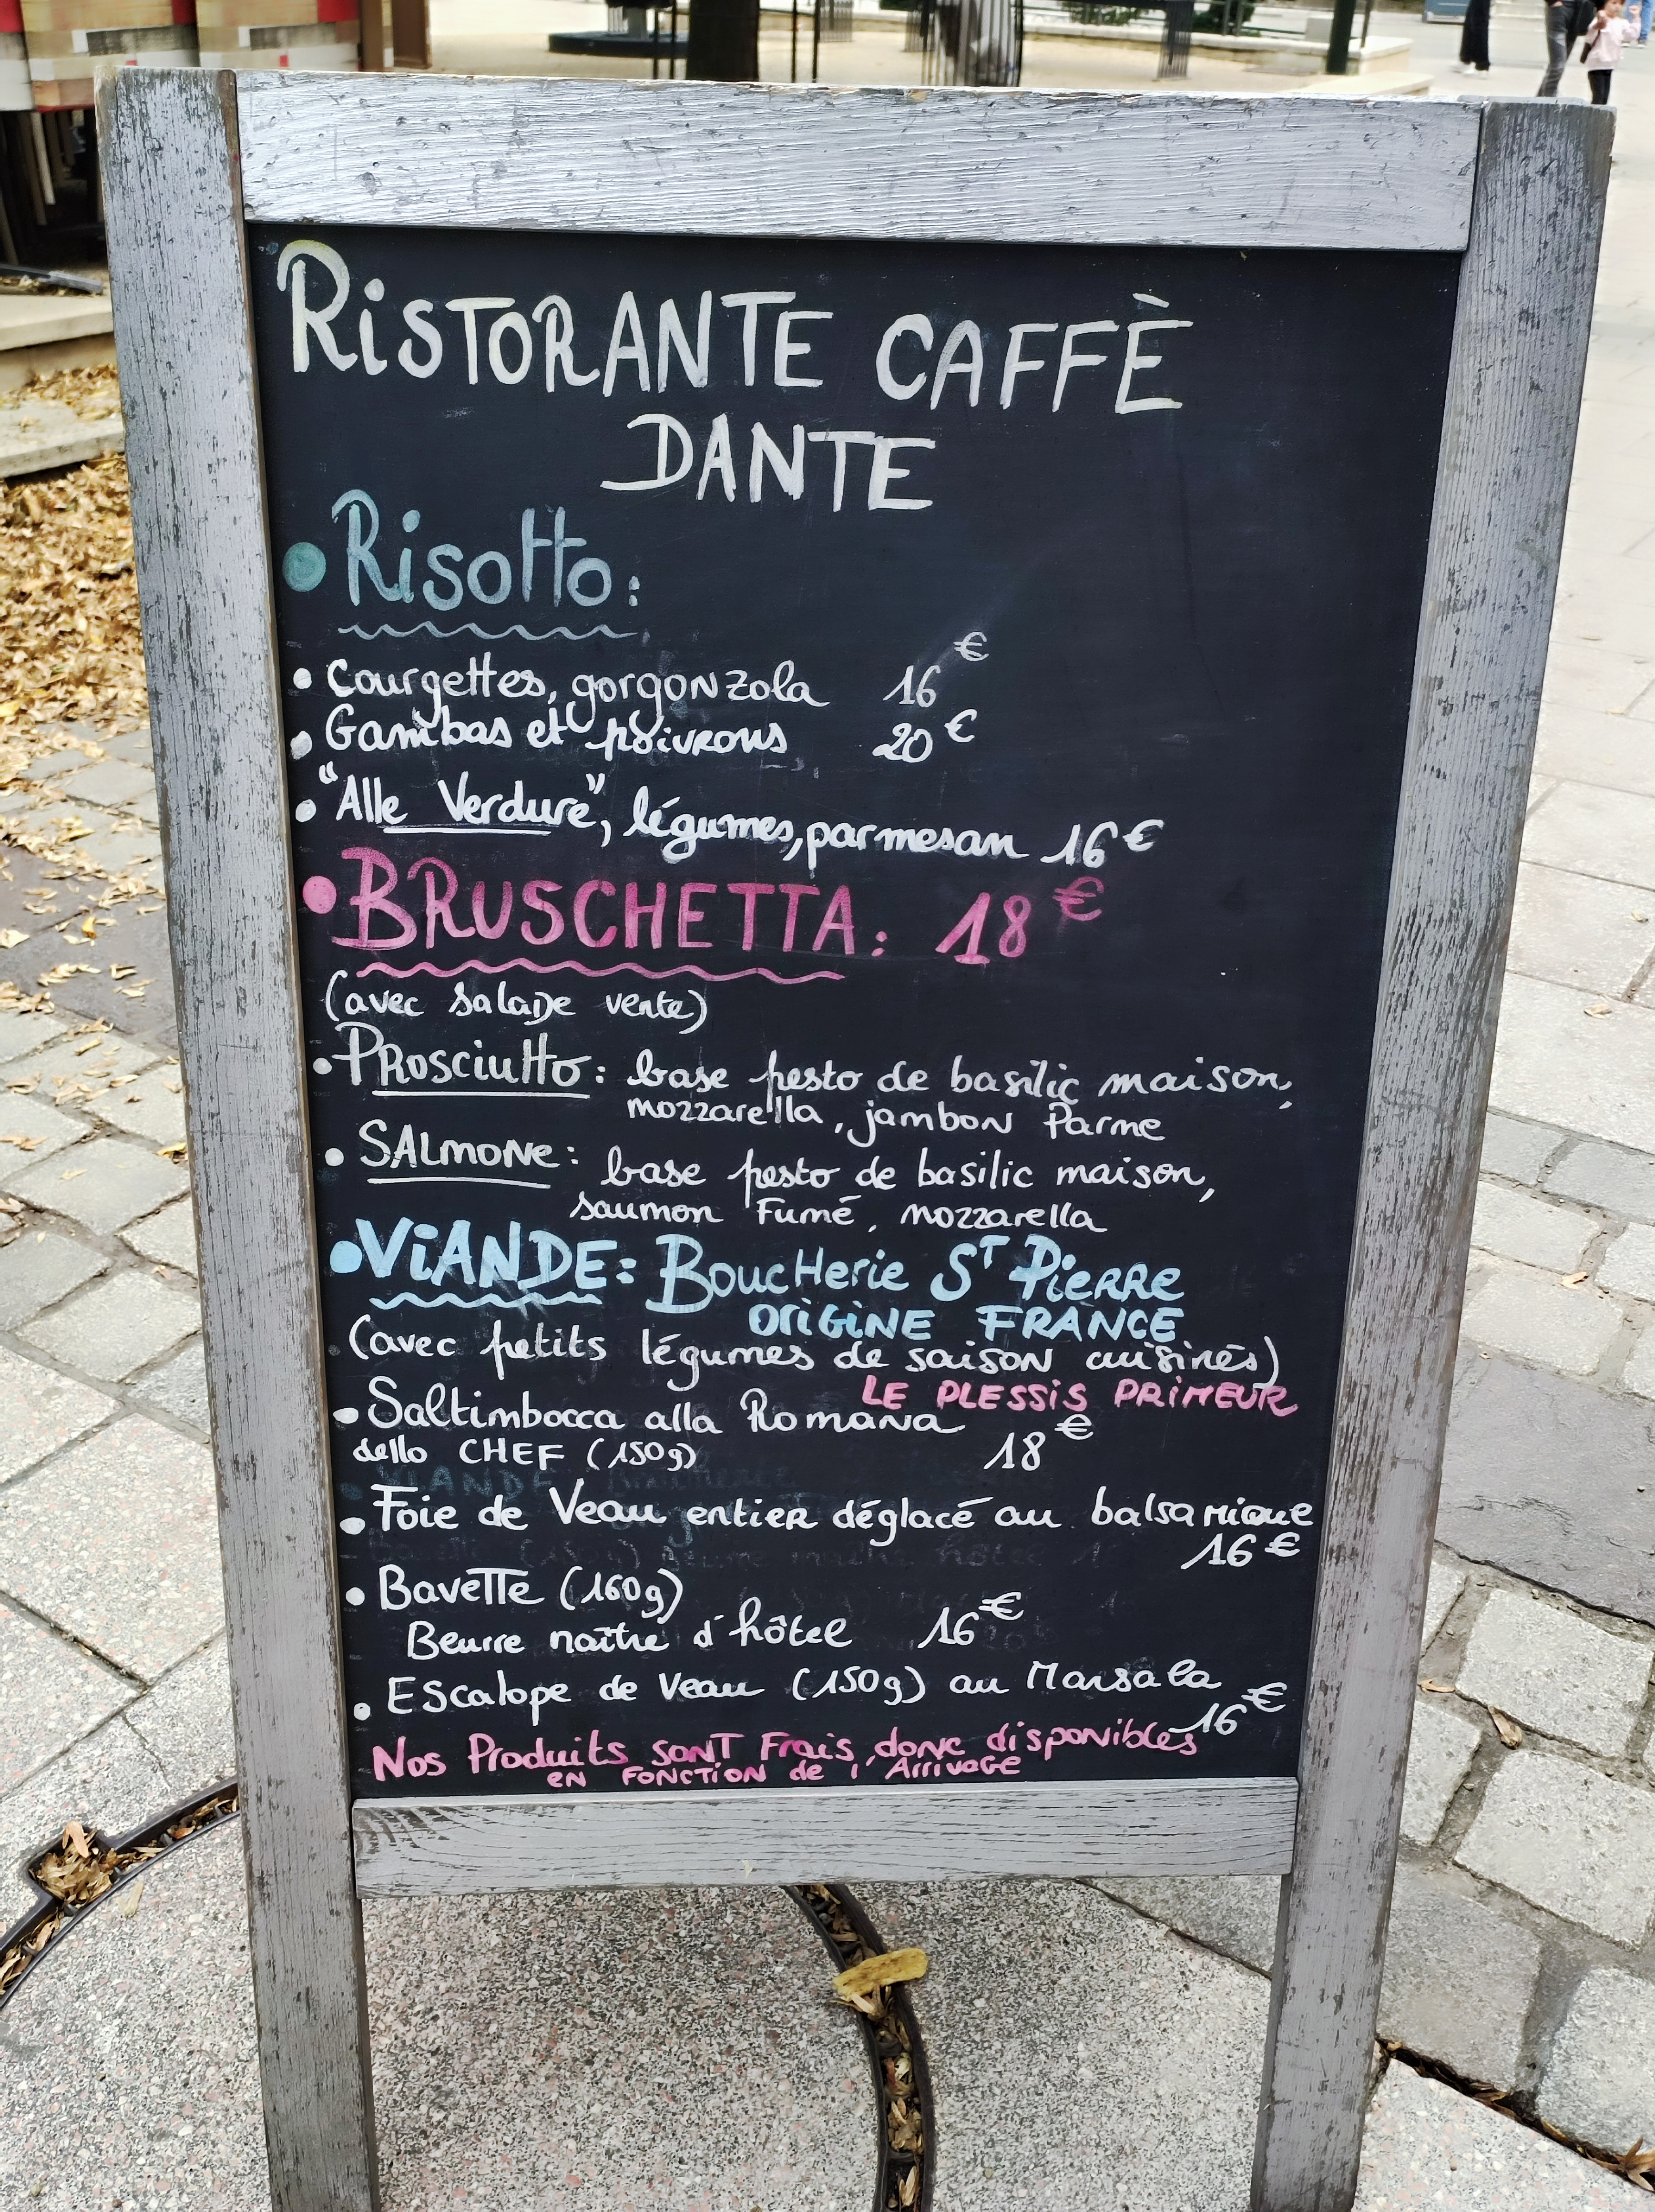 RISTORANTE CAFFÈ
DANTE
• Risotto:
• Courgettes, gorgonzola 16€
• Gambas et poivrons 20€
• "Alle Verdure", légumes, parmesan 16€
• BRUSCHETTA: 18€
(avec salade verte)
• PROSCIUTTO: base pesto de basilic maison,
mozzarella, jambon Parme
• SALMONE: base pesto de basilic maison,
saumon Fumé, mozzarella
• VIANDE: Boucherie ST PIERRE
ORIGINE FRANCE
(avec petits légumes de saison cuisinés)
LE PLESSIS PRIMEUR
• Saltimbocca alla Romana
dello CHEF (150g) 18€
• Foie de Veau entier déglacé au balsamique
16€
• Bavette (160g)
Beurre maître d'hôtel 16€
• Escalope de Veau (150g) au Marsala
16€
Nos Produits sont Frais, donc disponibles
en fonction de l'Arrivage